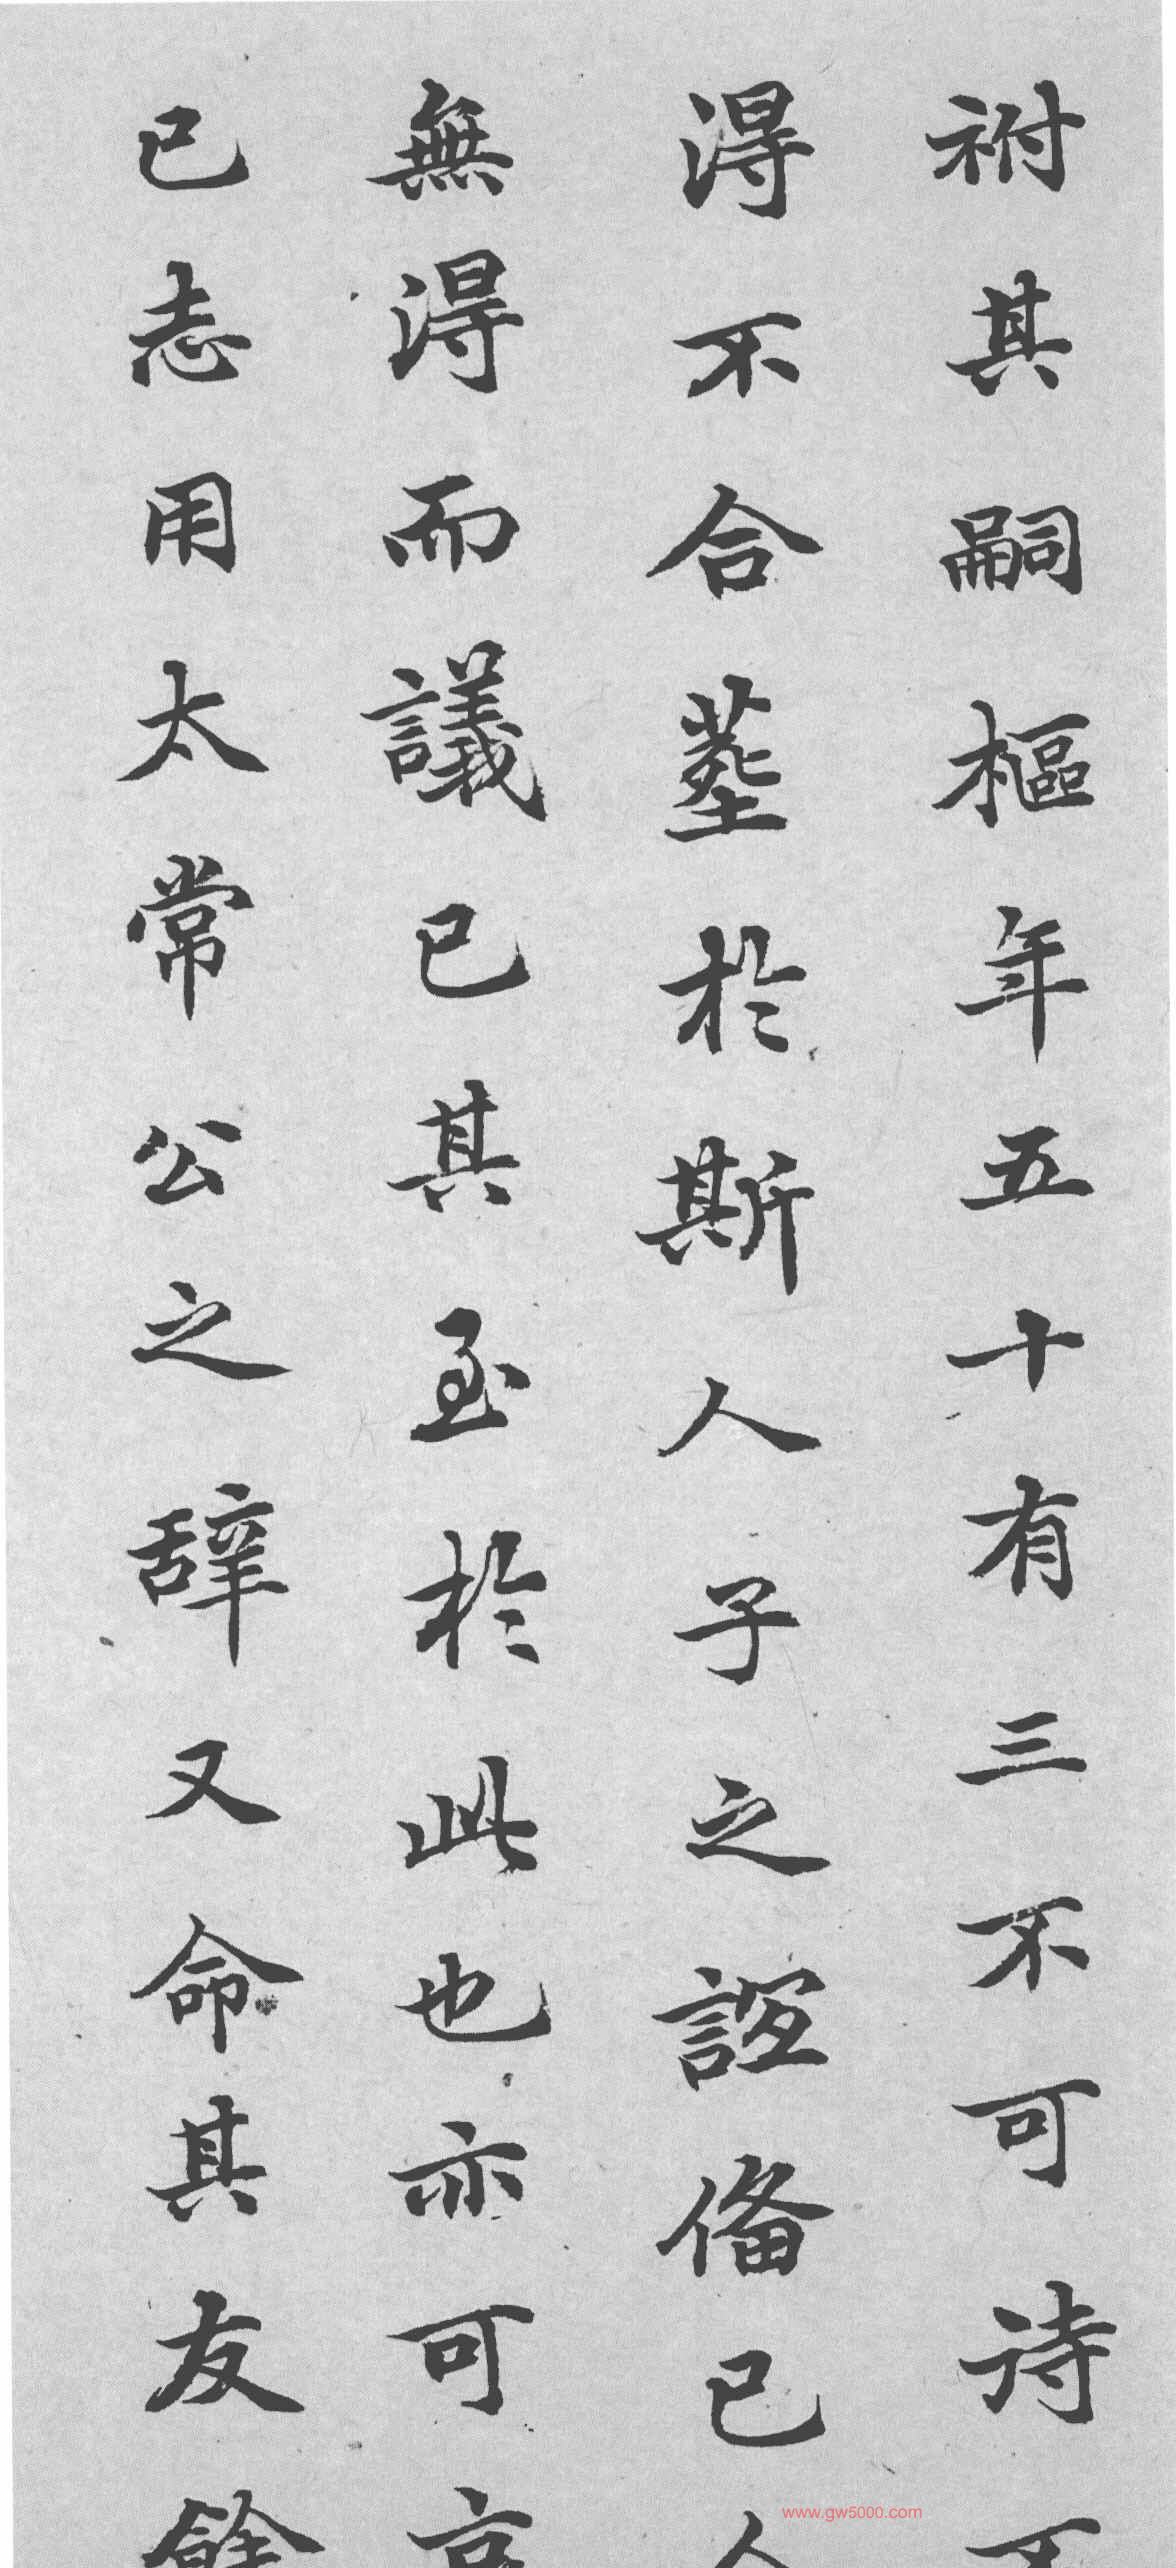 祔其嗣樞年五十有三不可詩不
得不合塟於斯人子之誼俻已人
無得而議已其至於此也亦可哀
已志用太常公之辞又命其友餘
www.gw5000.com